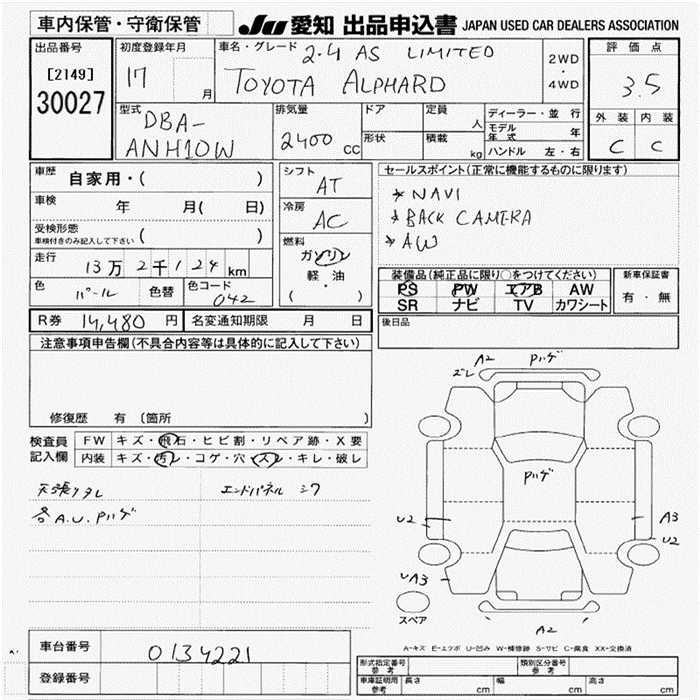 車内保管・守衛保管 JU 愛知 出品申込書 JAPAN USED CAR DEALERS ASSOCIATION
出品番号
[2149]
30027
初度登録年月
17 月
車名・グレード 2.4 AS LIMITED
TOYOTA ALPHARD
2WD
・
4WD
評価点
3.5
外装 内装
C C
型式
DBA-
ANH10W
排気量
2400 CC
ドア
形状
定員 人
積載 kg
ディーラー・並行
モデル年式 年
ハンドル 左・右
車歴 自家用・( )
車検 年 月( 日)
受検形態
車検付きのみ記入して下さい ( )
走行 13万2千124km
色 パール 色替 色コード 042
シフト
AT
冷房
AC
燃料
ガソリン
・
軽・油
・
( )
セールスポイント(正常に機能するものに限ります)
* NAVI
* BACK CAMERA
* AW
装備品(純正品に限り○をつけてください)
PS PW エアB AW
SR ナビ TV カワシート
新車保証書
有・無
R券 14,480 円 名変通知期限 月 日
後日品
注意事項申告欄(不具合内容等は具体的に記入して下さい)
修復歴 有 〔箇所 〕
検査員 FW キズ・飛石・ヒビ割・リペア跡・X要
記入欄 内装 キズ・汚レ・コゲ・穴・スレ・キレ・破レ
天張りタレ エンドパネル シワ
各A.U.Pハゲ
A2 Pハゲ
ズレ
Pハゲ
U2
A3
U2
A3
A2
スペア
A-キズ E-エクボ U-凹み W-補修跡 S-サビ C-腐食 XX-交換済
車台番号 0134221
登録番号
形式指定番号 参考 類別区分番号 参考
車庫証明用 参考 長さ cm 幅 cm 高さ cm